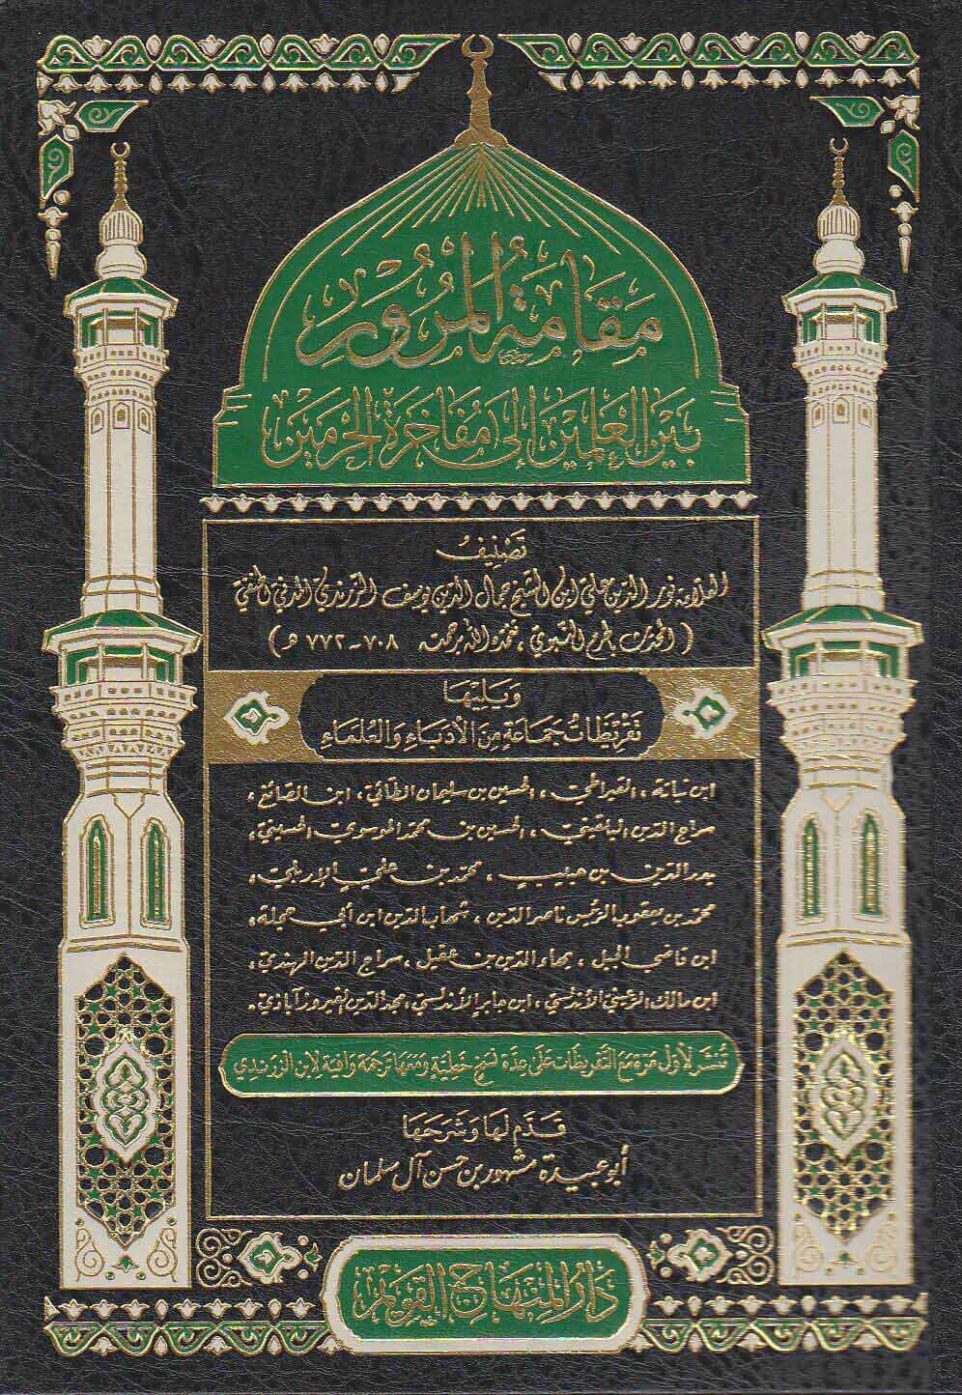 مَقَامَةُ المُرُورِ
بَيْنَ العَلَمَيْنِ إلى مُفَاخَرَةِ الحَرَمَيْنِ
تَصْنِيفُ
العلامة نور الدين علي ابن الشيخ جمال الدين يوسف الزرندي المدني الحنفي
( المحدث بالحرم النبوي ، تغمده الله برحمته ٧٠٨ - ٧٧٢ هـ )
وَيَلِيْهَا
تَقْرِيْظَاتُ جَمَاعَةٍ مِنَ الأُدَبَاءِ وَالعُلَمَاءِ
ابن نباتة ، القيراطي ، الحسين بن سليمان الطائي ، ابن الصائغ ،
سراج الدين البلقيني ، الحسين بن محمد الموسوي الحسيني ،
بدر الدين بن حبيب ، محمد بن علي الإربلي ،
محمد بن يعقوب الرئيس ناصر الدين ، شهاب الدين ابن أبي حجلة ،
ابن قاضي الجبل ، بهاء الدين بن عقيل ، سراج الدين الهندي ،
ابن مالك الرعيني الأندلسي ، ابن جابر الأندلسي ، مجد الدين الفيروزآبادي .
تُنْشَرُ لأَوَّلِ مَرَّةٍ مَعَ التَّقْرِيظَاتِ عَلَى عِدَّةِ نُسَخٍ خَطِّيَّةٍ وَمَعَهَا تَرْجَمَةٌ وَافِيَةٌ لِابْنِ الزَّرَنْدِي
قَدَّمَ لَهَا وَشَرَحَهَا
أبو عبيدة مشهور بن حسن آل سلمان
دَارُ المِنْهَاجِ القَوِيْمِ